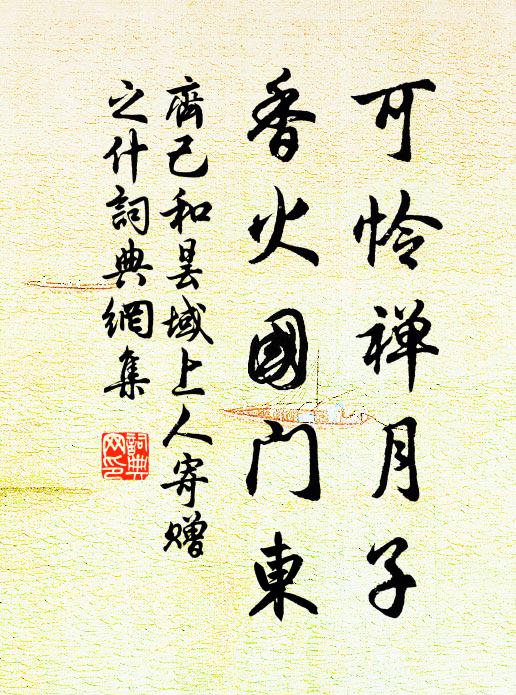 可怜禅月子
香火國门東
齊己和昙域上人寄赠
之什詞典網集
詞典网印